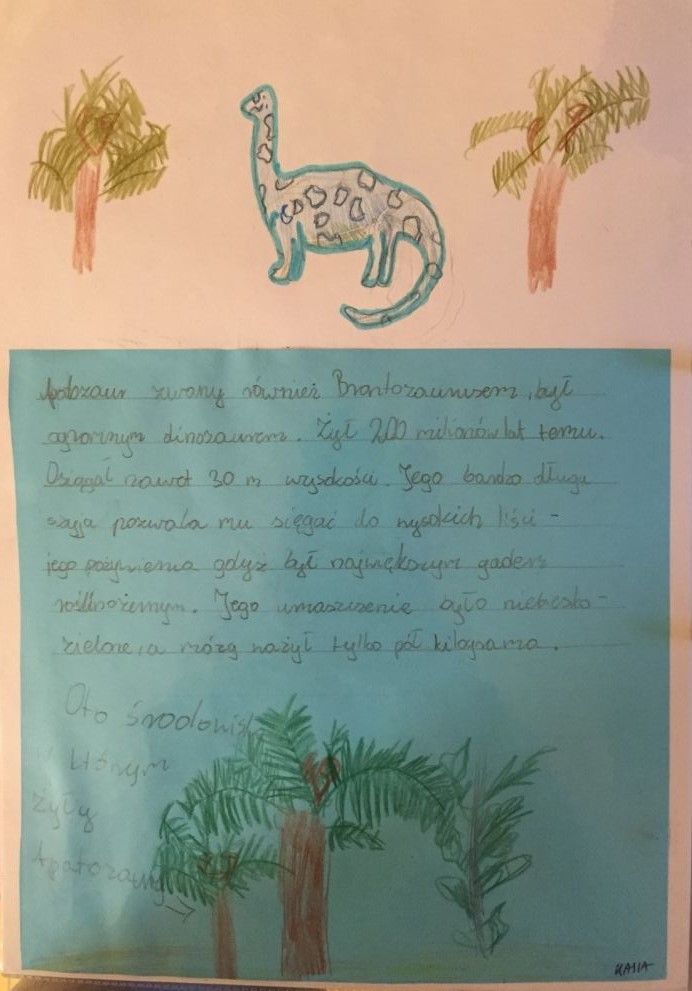 Apatozaur zwany również Brontozaurusem, był
ogromnym dinozaurem. Żył 200 milionów lat temu.
Osiągał nawet 30 m wysokości. Jego bardzo długa
szyja pozwala mu sięgać do wysokich liści -
jego pożywienia gdyż był największym gadem
roślinożernym. Jego umaszczenie było niebiesko-
zielone, a mózg ważył tylko pół kilograma.
Oto środowisko
w którym
żyły
Apatozaury
KASIA